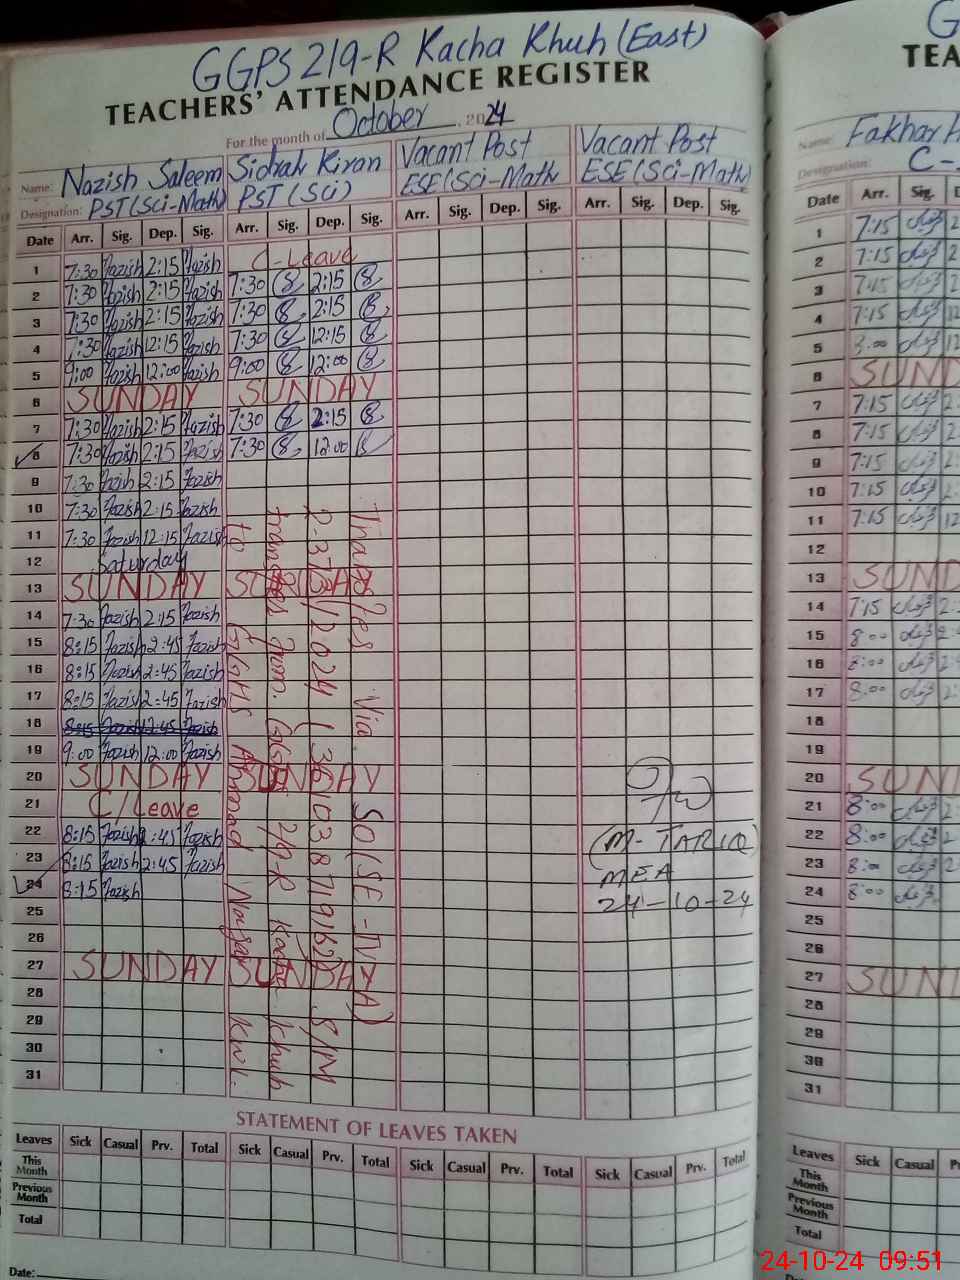 GGPS 219-R Kacha Khuh (East)
TEACHERS' ATTENDANCE REGISTER
For the month of October, 2024
Name: Nazish Saleem Sidrah Kiran Vacant Post Vacant Post
Designation: PST (Sci-Math) PST (Sci) ESE (Sci-Math ESE (Sci-Math)
Date Arr. Sig. Dep. Sig. Arr. Sig. Dep. Sig. Arr. Sig. Dep. Sig. Arr. Sig. Dep. Sig.
1 7:30 Nazish 2:15 Nazish C-Leave
2 7:30 Nazish 2:15 Nazish 7:30 2:15
3 7:30 Nazish 2:15 Nazish 7:30 2:15
4 7:30 Nazish 12:15 Nazish 7:30 12:15
5 9:00 Nazish 12:00 Nazish 9:00 12:00
6 SUNDAY SUNDAY
7 7:30 Nazish 2:15 Nazish 7:30 2:15
8 7:30 Nazish 2:15 Nazish 7:30 12:00
9 7:30 Nazish 2:15 Nazish
10 7:30 Nazish 2:15 Nazish
11 7:30 Nazish 12:15 Nazish
12 Saturday
13 SUNDAY SUNDAY
14 7:30 Nazish 2:15 Nazish
15 8:15 Nazish 2:45 Nazish
16 8:15 Nazish 2:45 Nazish
17 8:15 Nazish 2:45 Nazish
18 8:15 Nazish 12:45 Nazish
19 9:00 Nazish 12:00 Nazish
20 SUNDAY SUNDAY
21 C/Leave
22 8:15 Nazish 2:45 Nazish
23 8:15 Nazish 2:45 Nazish
24 8:15 Nazish
25
26
27 SUNDAY SUNDAY
28
29
30
31
Via SO (SE-IV
transfer from GGPS 219-R Kacha Khuh
to Ahmad Nagar KWL.
(M-TARIQ)
MEA
24-10-24
STATEMENT OF LEAVES TAKEN
Leaves Sick Casual Prv. Total Sick Casual Prv. Total Sick Casual Prv. Total Sick Casual Prv. Total
This Month
Previous Month
Total
Date:
G
TEA
Name: Fakhar
Designation: C-
Date Arr. Sig.
1 7:15
2 7:15
3 7:15
4 7:15
5 8:00
6 SUND
7 7:15
8 7:15
9 7:15
10 7:15
11 7:15
12
13 SUND
14 7:15
15 8:00
16 8:00
17 8:00
18
19
20 SUN
21 8:00
22 8:00
23 8:00
24 8:00
25
26
27 SUN
28
29
30
31
Leaves Sick Casual P
This Month
Previous Month
Total
24-10-24 09:51